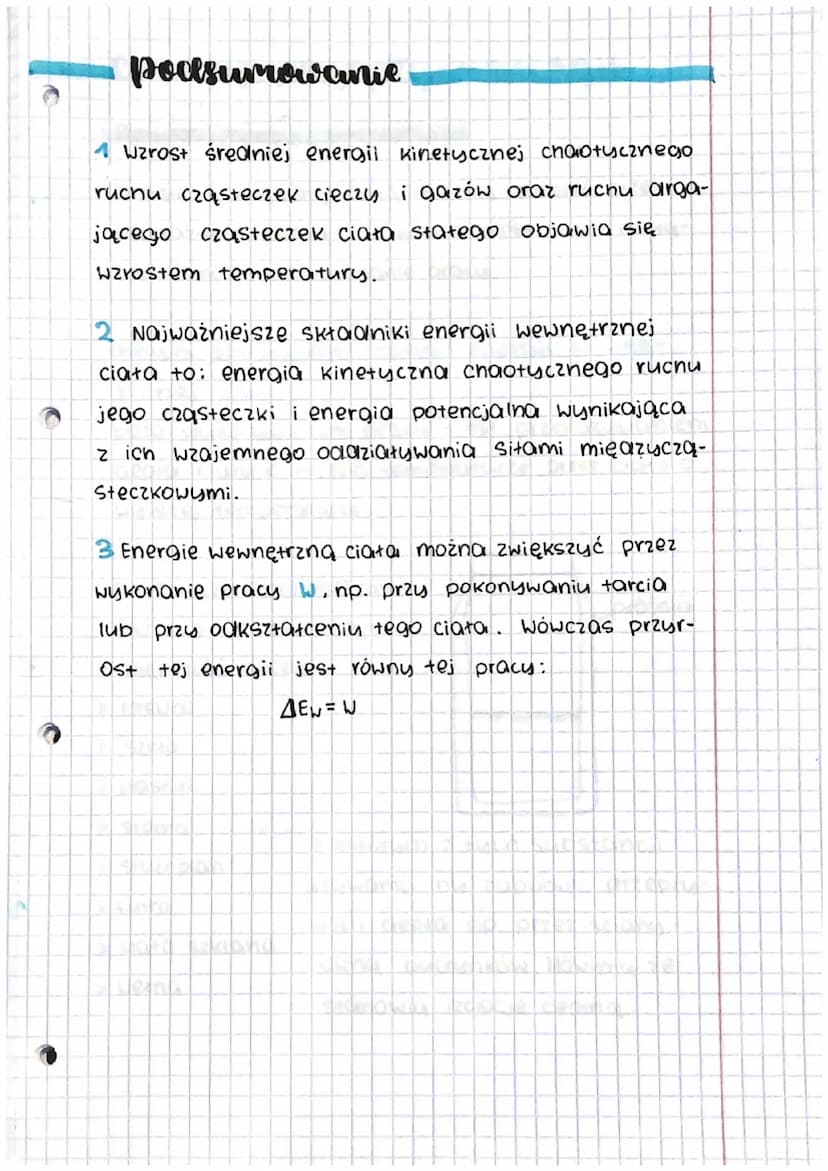 podsumowanie
1 Wzrost średniej energii kinetycznej chaotycznego
ruchu cząsteczek cieczy i gazów oraz ruchu drga-
jącego cząsteczek ciała stałego objawia się
wzrostem temperatury.
2 Najważniejsze składniki energii wewnętrznej
ciała to: energia kinetyczna chaotycznego ruchu
jego cząsteczki i energia potencjalna wynikająca
z ich wzajemnego oddziaływania siłami międzyczą-
steczkowymi.
3 Energie wewnętrzną ciała można zwiększyć przez
wykonanie pracy W, np. przy pokonywaniu tarcia
lub przy odkształceniu tego ciała. Wówczas przyr-
ost tej energii jest równy tej pracy:
ΔEw = W